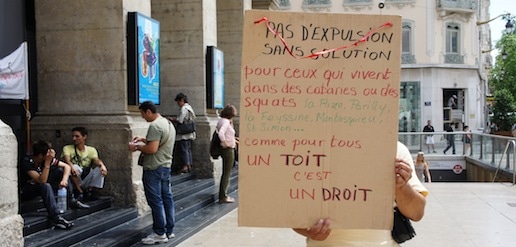 PAS D'EXPULSION
SANS SOLUTION
pour ceux qui vivent
dans des cabanes ou des
squats la Feyssine, Montesquieu,
St Simon...
comme pour tous
UN TOIT
C'EST
UN DROIT